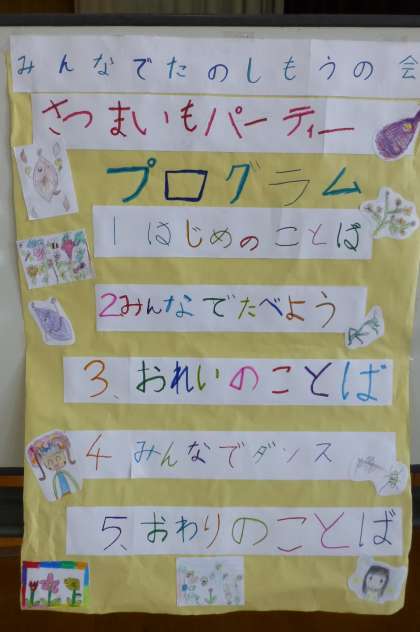 みんなでたのしもうの会
さつまいもパーティー
プログラム
1 はじめのことば
2みんなでたべよう
3、おれいのことば
4 みんなでダンス
5、おわりのことば